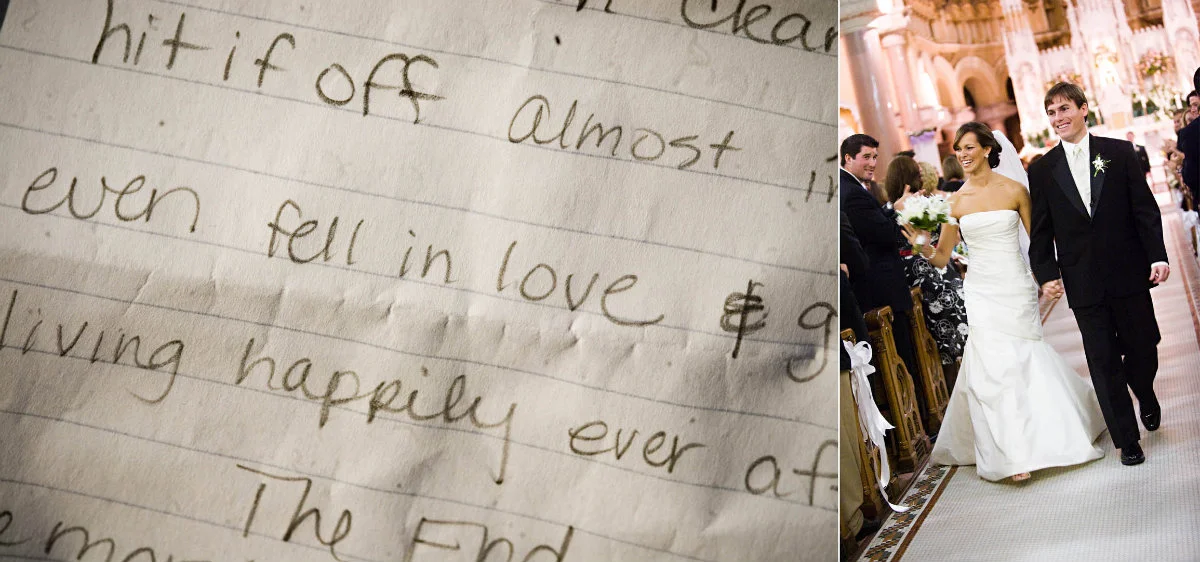 clear
hit if off almost
even fell in love & g
living happily ever af
The End